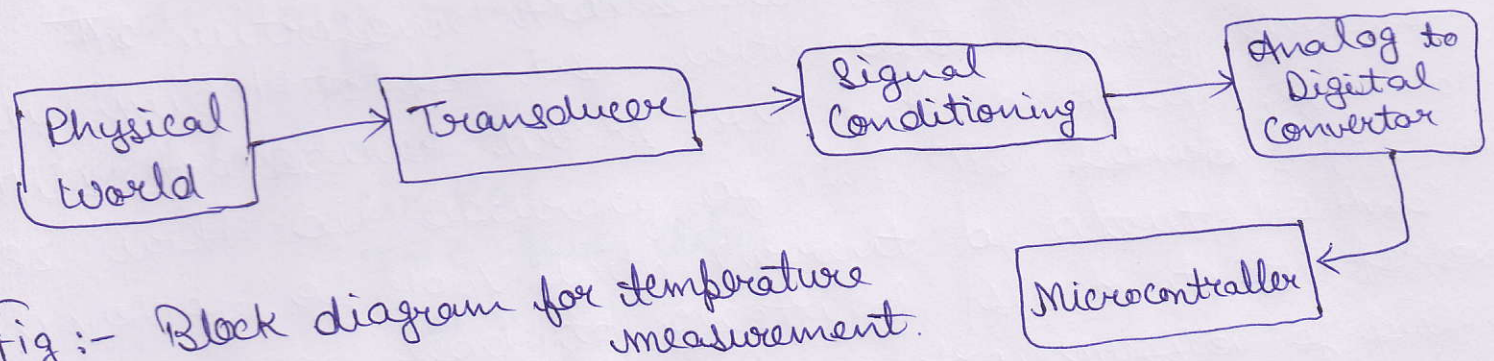 Physical
world
Transducer
Signal
Conditioning
Analog to
Digital
Convertar
Microcontraller
Fig :- Block diagram for temperature
measurement.